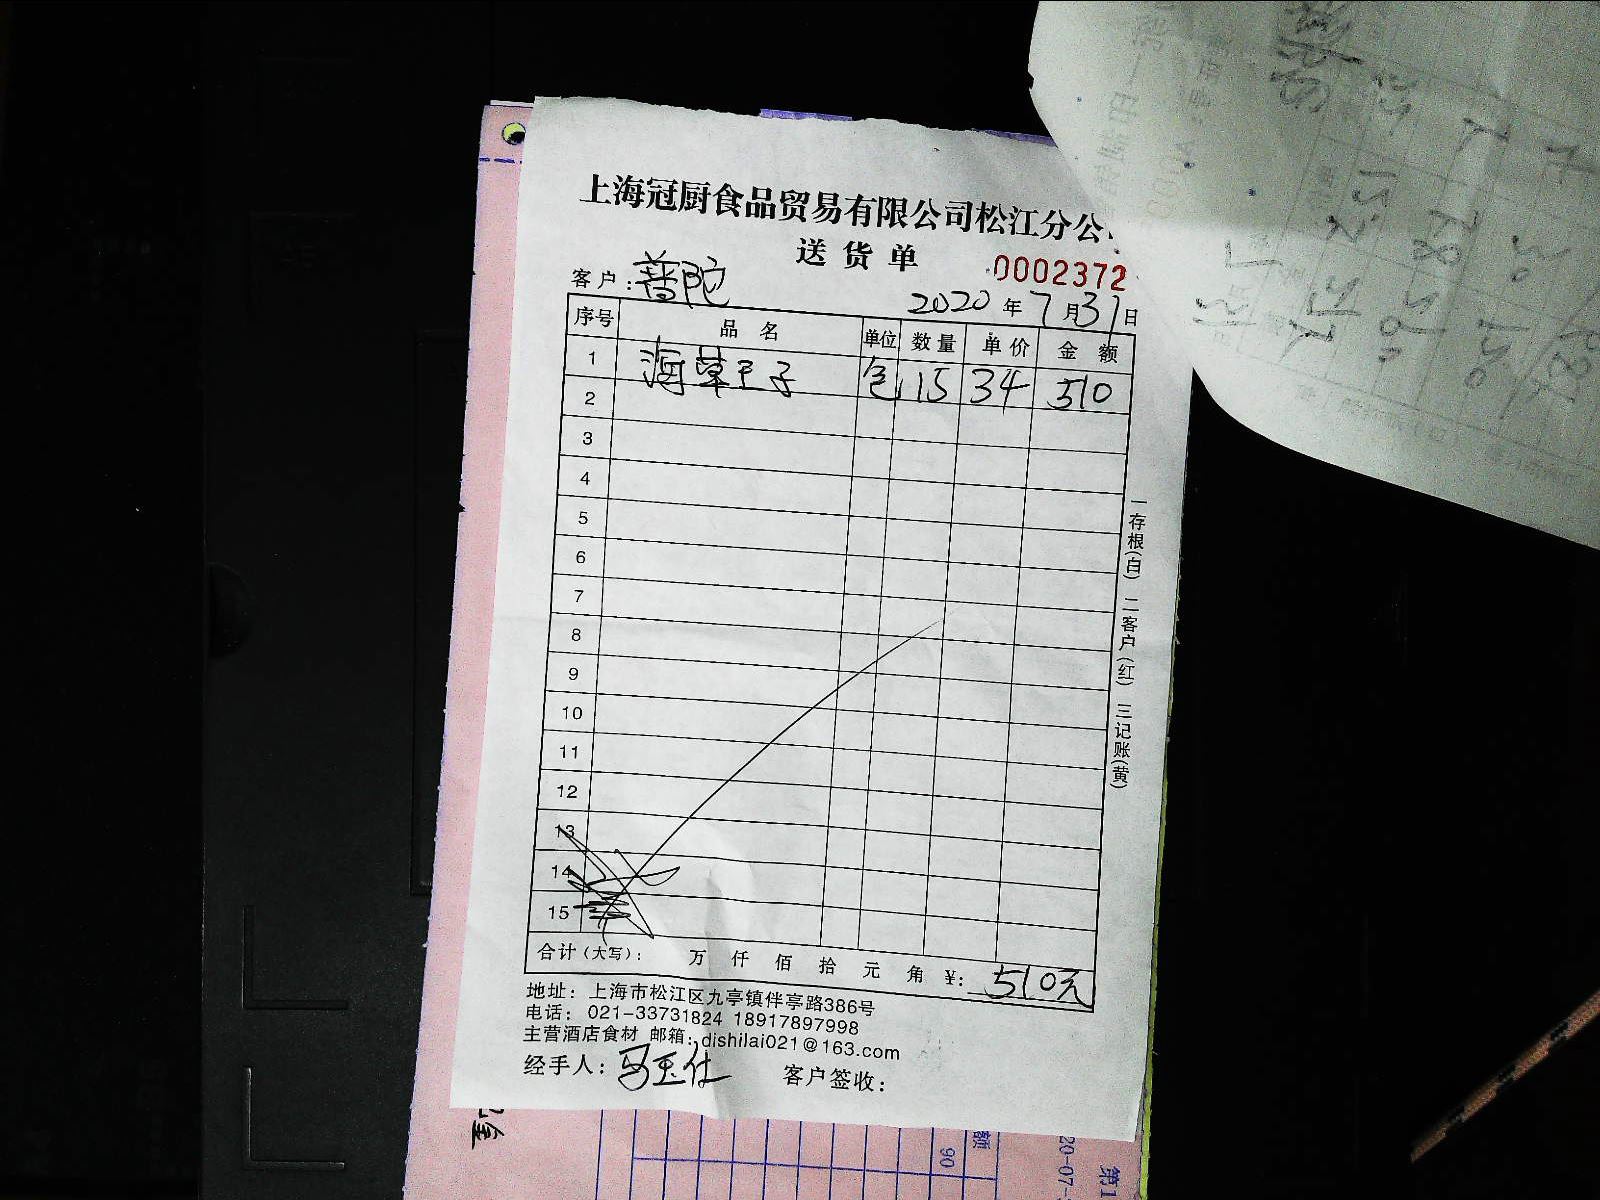 上海冠厨食品贸易有限公司松江分公
送货单
0002372
客户：普陀
2020年7月31日
序号 品名 单位 数量 单价 金额
1 海草王子 包 15 34 510
2
3
4
5
6
7
8
9
10
11
12
13
14
15
合计（大写）： 万 仟 佰 拾 元 角 ¥：510元
地址：上海市松江区九亭镇伴亭路386号
电话：021-33731824 18917897998
主营酒店食材 邮箱：dishilai021@163.com
经手人：马玉仕 客户签收：
一存根(白) 二客户(红) 三记账(黄)
额
90
20-07-
第1